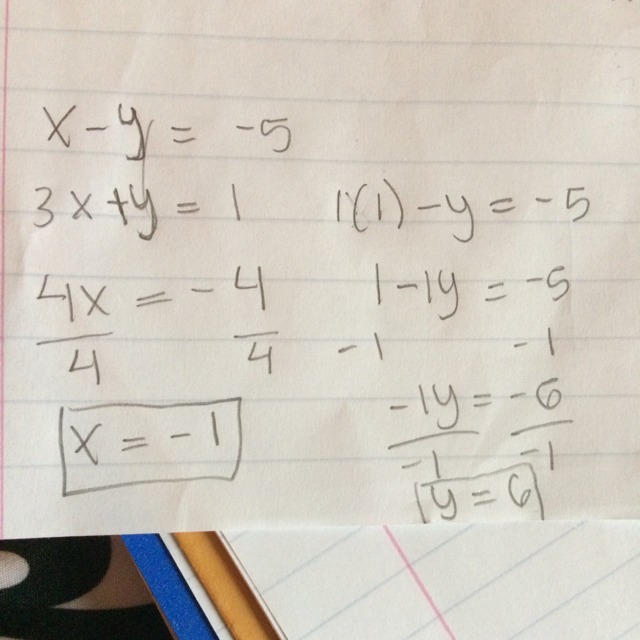 x - y = -5
3x + y = 1
4x = -4
4 4
x = -1
1(1) - y = -5
1 - 1y = -5
-1 -1
-1y = -6
-1 -1
y = 6